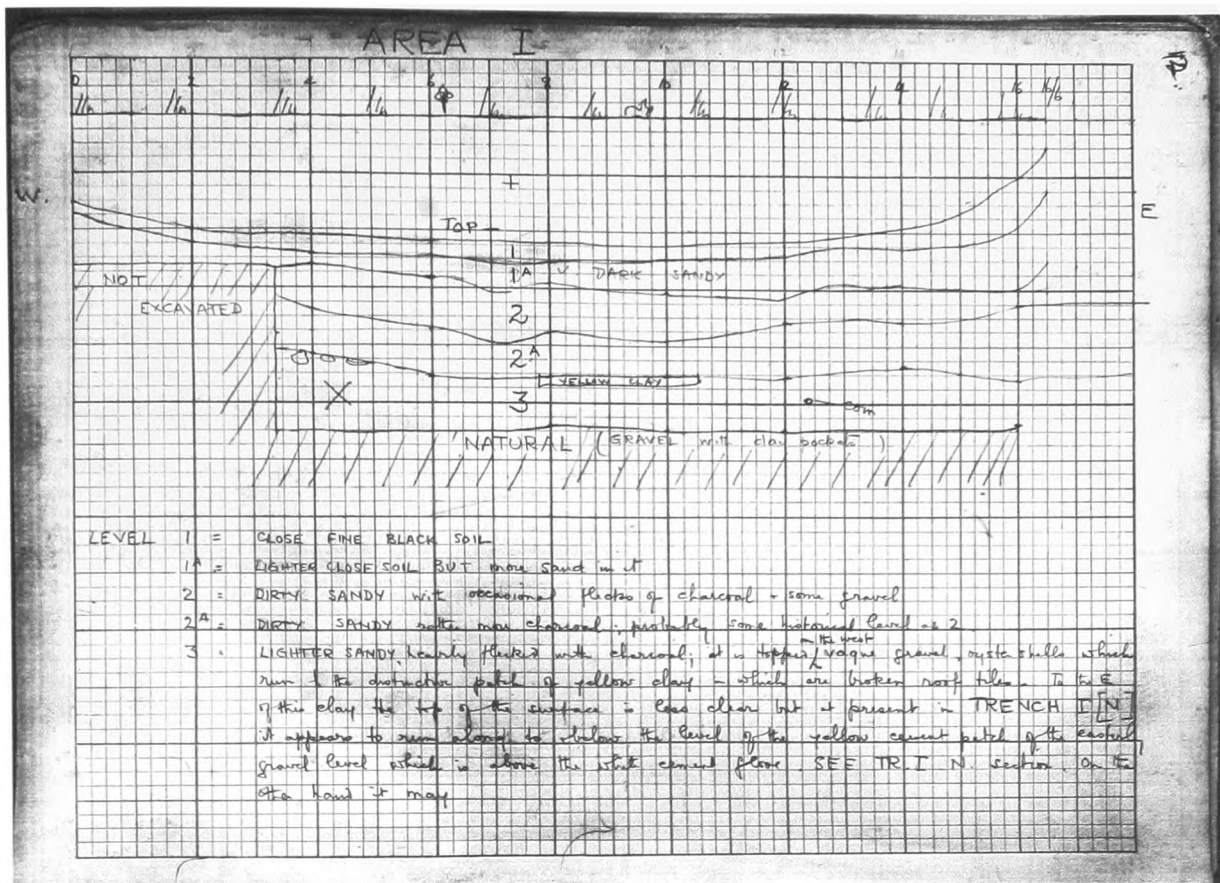 AREA I
0 2 4 6 8 10 12 14 16 16/6
W.
E
+
TOP
1
1A V. DARK SANDY
NOT
EXCAVATED
2
2A
YELLOW CLAY
X
3
com
NATURAL (GRAVEL with clay pockets)
LEVEL 1 = CLOSE FINE BLACK SOIL
1A = LIGHTER CLOSE SOIL BUT more sand in it
2 = DIRTY SANDY with occasional flecks of charcoal + some gravel
2A = DIRTY SANDY rather more charcoal; probably same historical level as 2
in the west
3 = LIGHTER SANDY, heavily flecked with charcoal; it is topped vague gravel, oyster shells which
run to the distinctive patch of yellow clay - which are broken roof tiles. To the E
of this clay the top of the surface is less clear but at present in TRENCH I [N]
it appears to run along to + below the level of the yellow cement patch of the
gravel level which is above the white cement floor. SEE TR. I N. section. On the
other hand it may